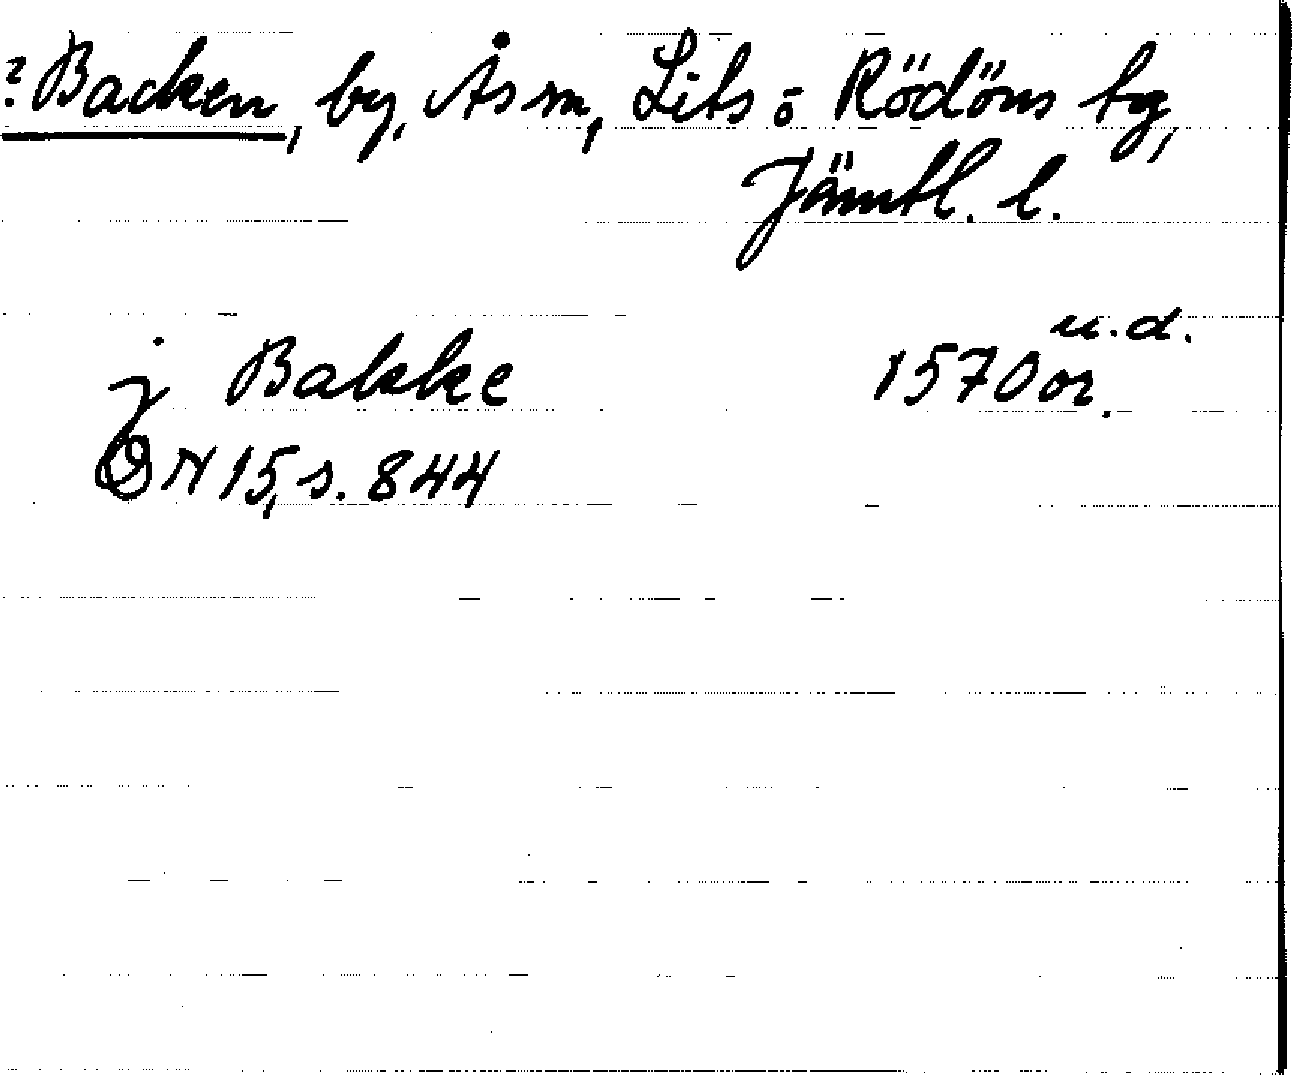 ? Backen, by, Ås sn, Lits o Rödöns tg,
Jämtl. l.
u.d.
j Bakke 1570 or.
DN 15, s. 844